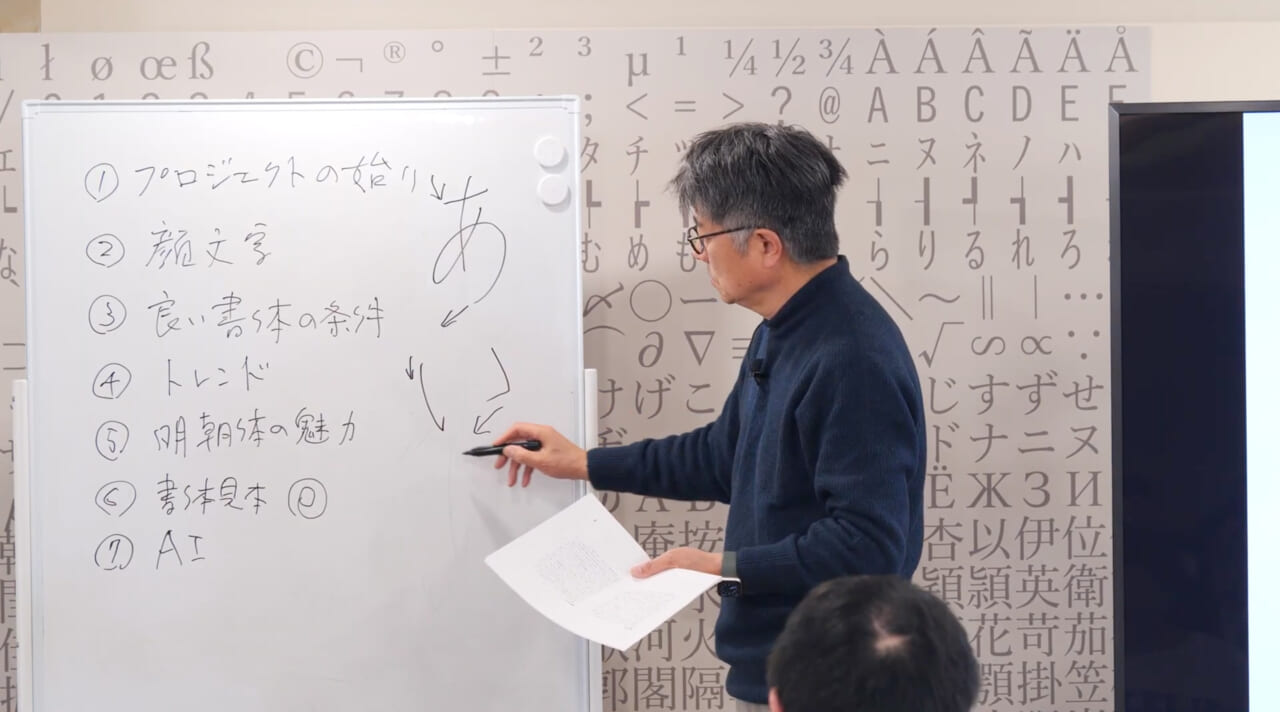 ł ø œ ß © ¬ ® ° ± ² ³ µ ¹ ¼ ½ ¾ À Á Â Ã Ä Å
; < = > ? @ A B C D E F
タ チ ニ ヌ ネ ノ ハ
な む め も ら り る れ ろ
〆 ◯ ー ＼ ～ ∥ ｜ …
∂ ∇ ≡ √ ∽ ∝ ∵
け げ こ じ す ず せ
ぢ ド ナ ニ ヌ
Ё Ж З И
庵 按 杏 以 伊 位
頴 頴 英 衛
河 火 花 苛 茄
郭 閣 隔 顎 掛 笠
① プロジェクトの始り
② 顔文字
③ 良い書体の条件
④ トレンド
⑤ 明朝体の魅力
⑥ 書体見本 @
⑦ AI
あ